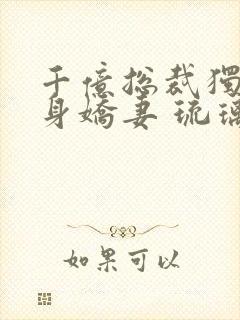 千億总裁獨
身嬌妻 琉璃
如果可以